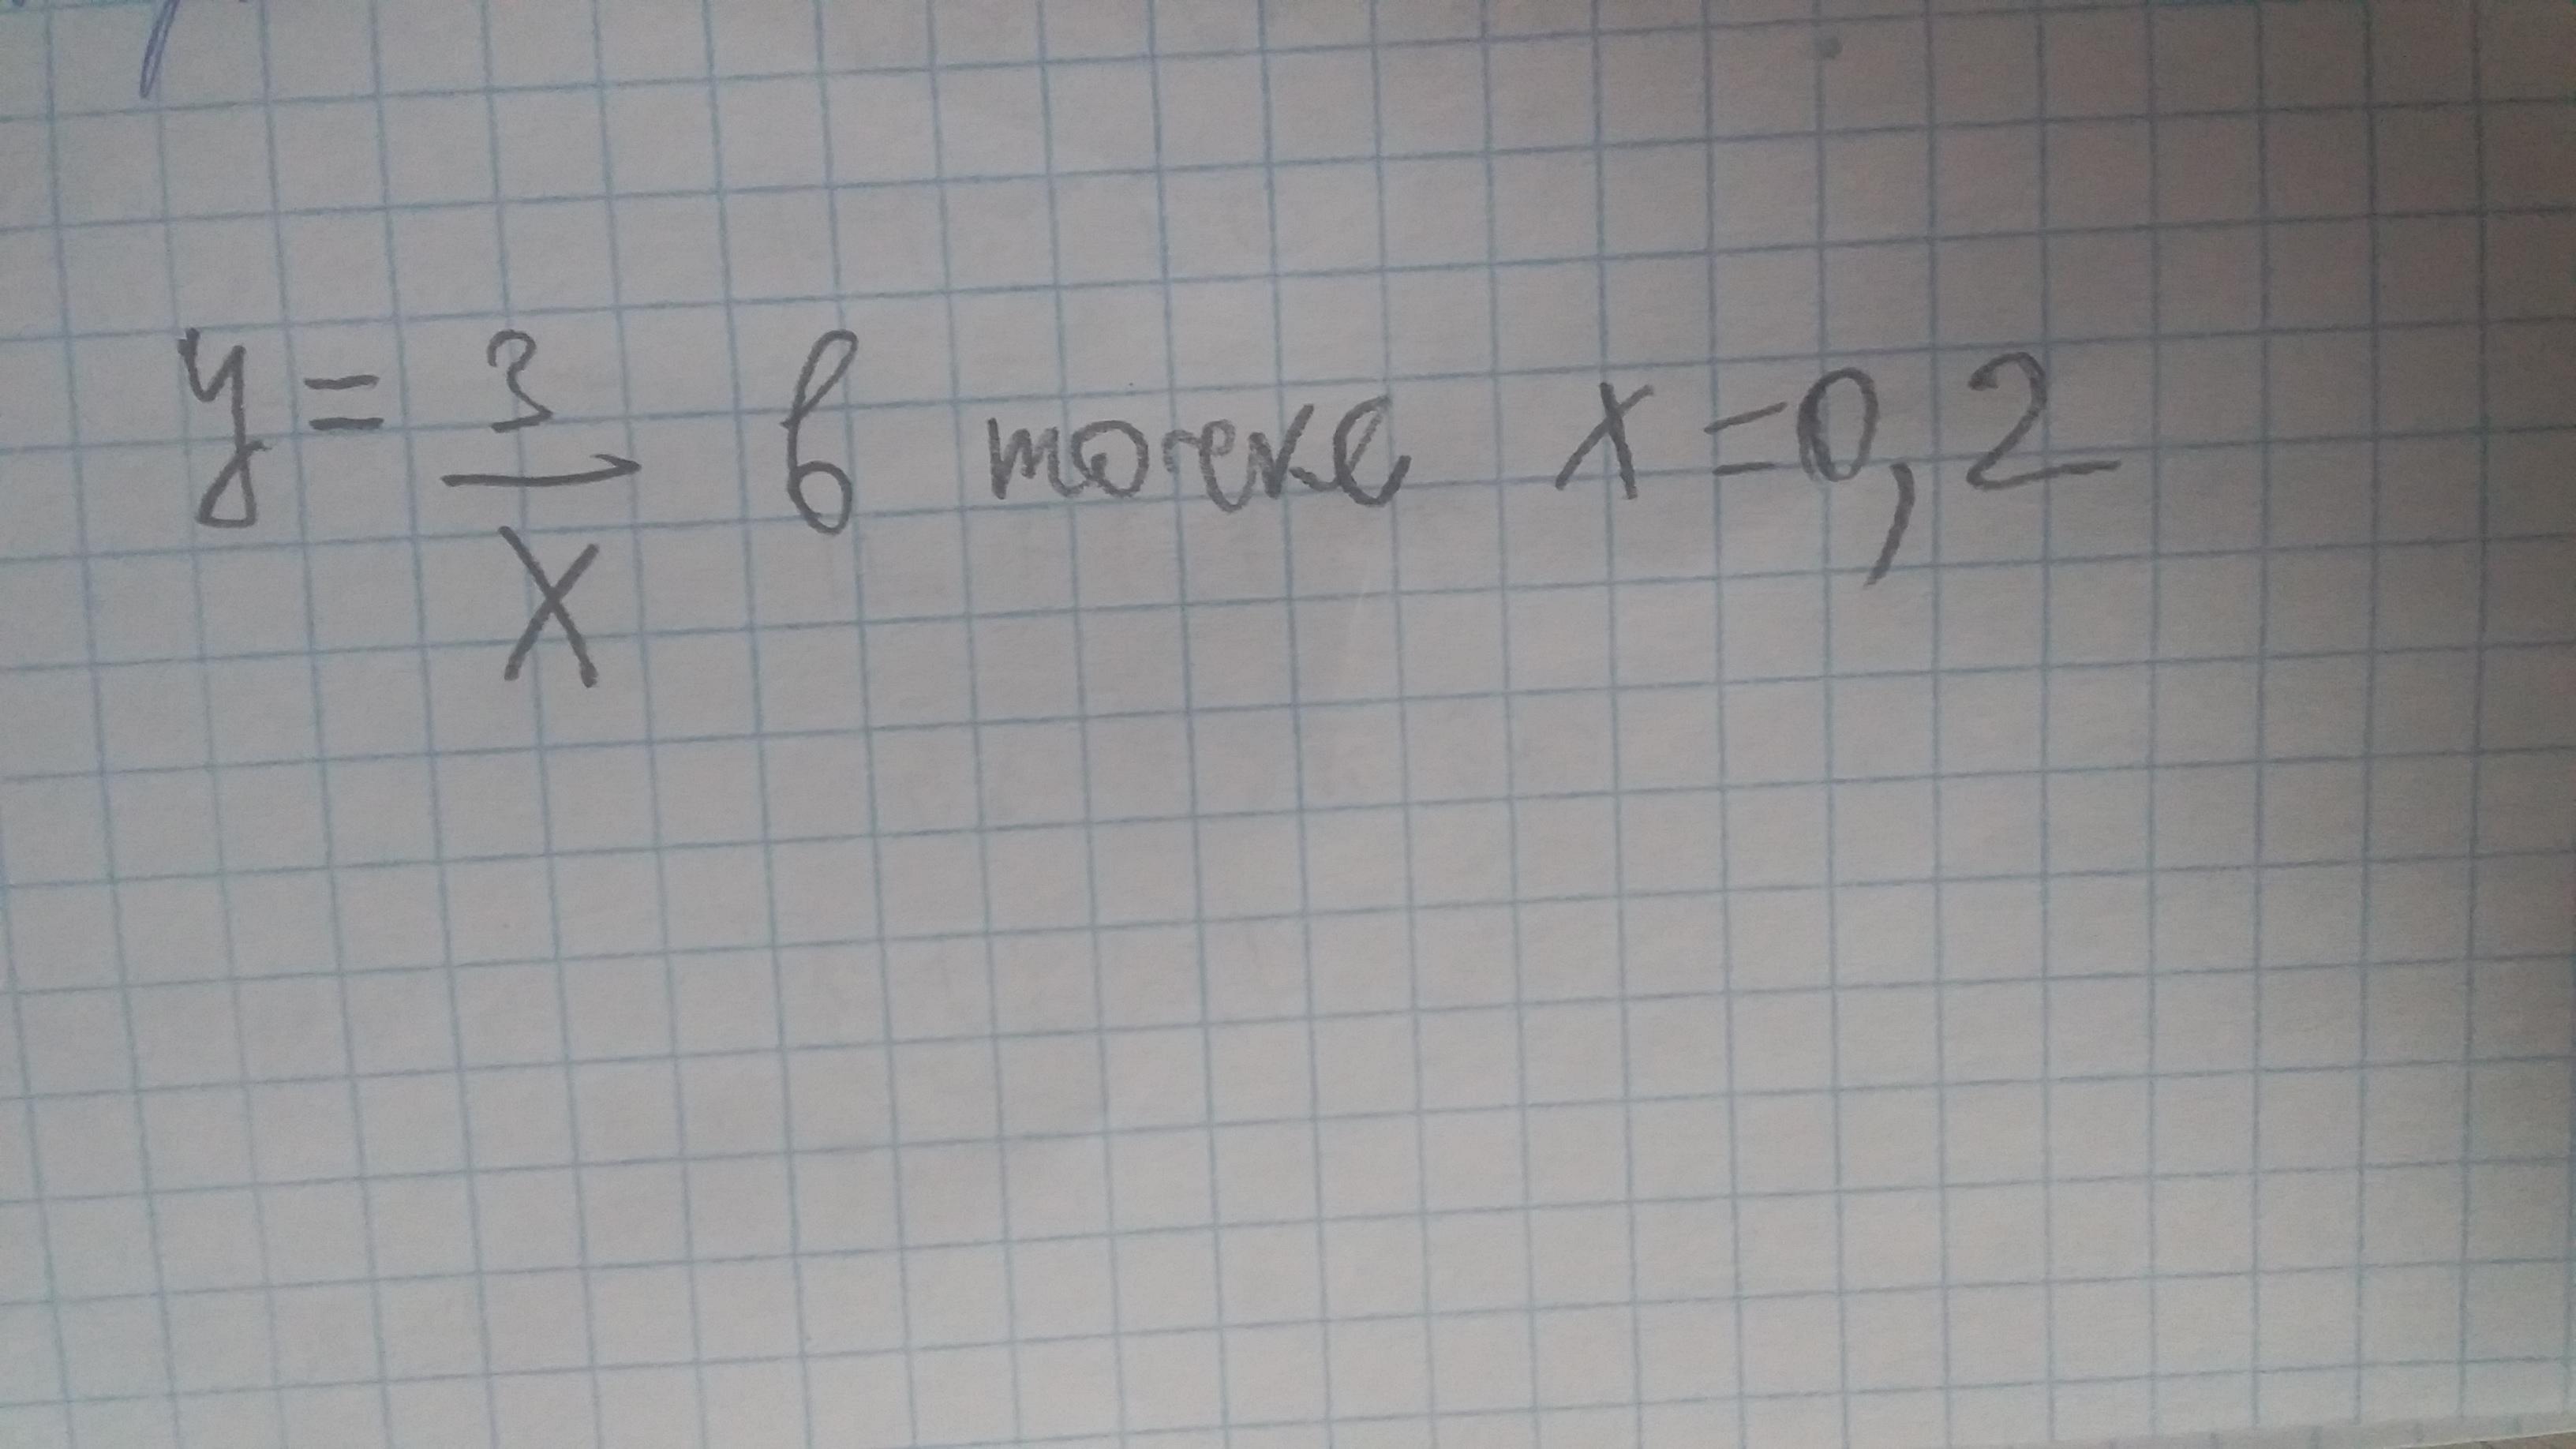 y = 3/x в точке x = 0,2